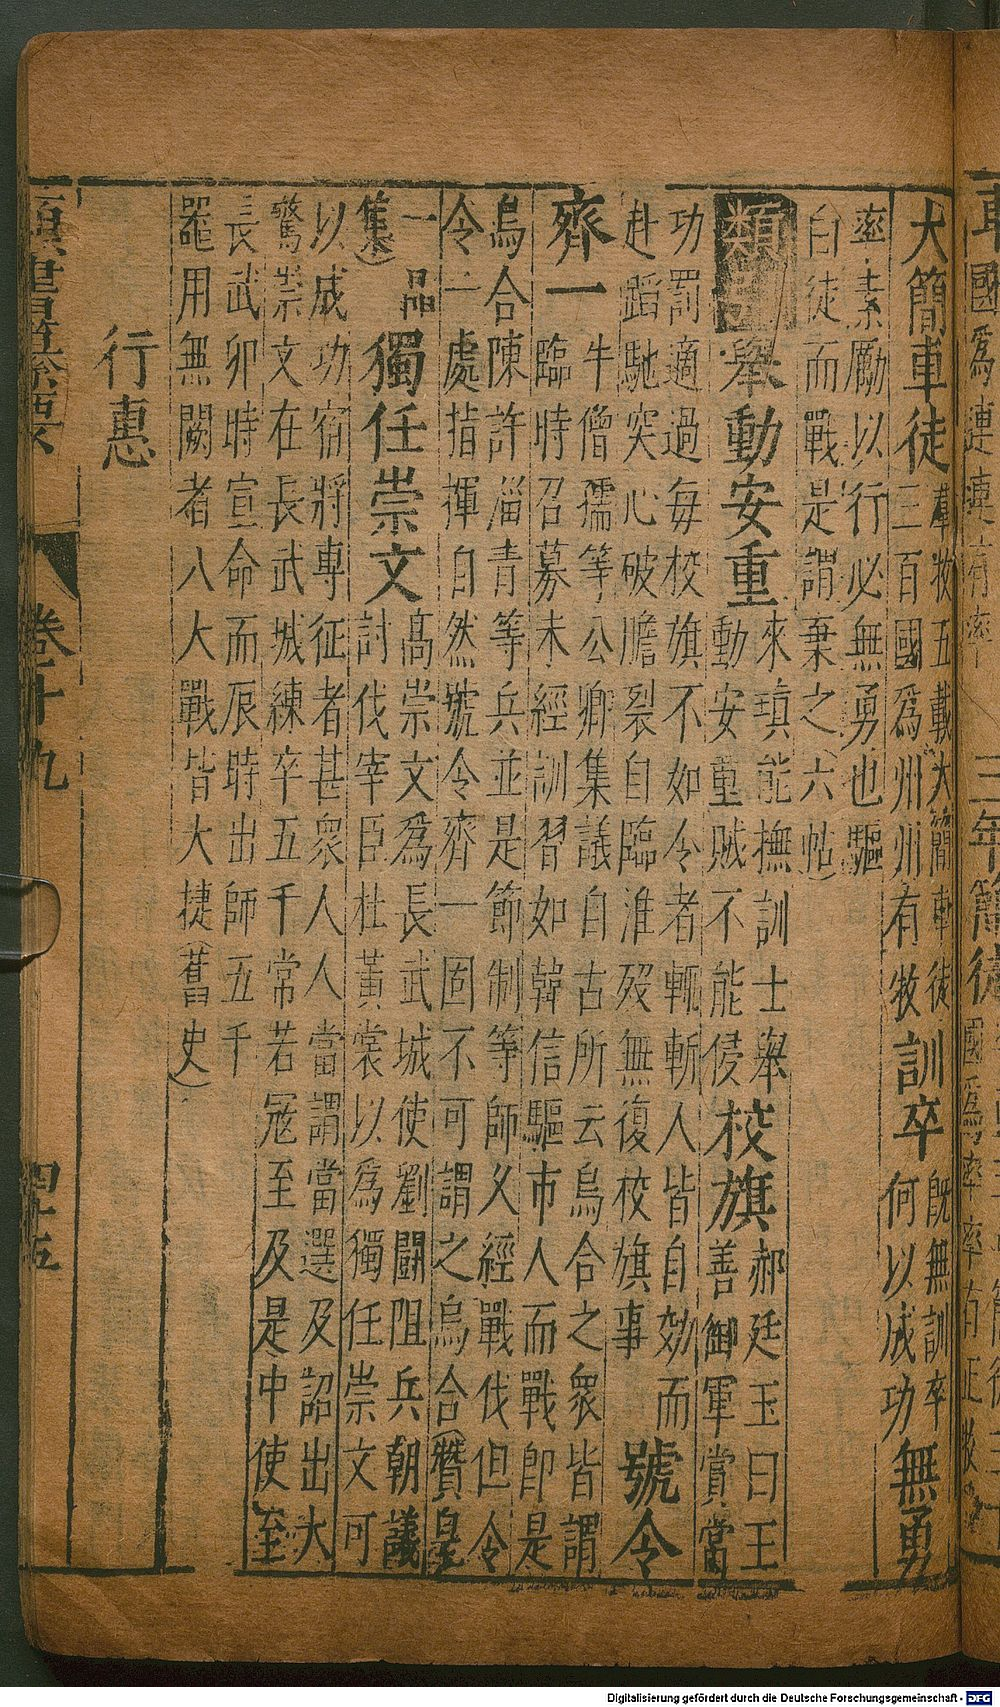 大簡車徒
羣牧五載大簡車徒
三百國爲州州有牧
訓卒
既無訓卒
何以成功
無勇
率素厲以行必無勇也驅
白徒而戰是謂棄之(六帖)
類
舉動安重
來瑱能撫訓士舉
動安重賊不能侵
校旗
郝廷玉曰王
善御軍賞當
功罰適過每校旗不如令者輒斬人皆自効而
赴蹈馳突心破膽裂自臨淮歿無復校旗事
號令
齊一
牛僧孺等公卿集議自古所云烏合之衆皆謂
臨時召募未經訓習如韓信驅市人而戰即是
烏合陳許淄青等兵並是節制等師久經戰伐但令
令一處指揮自然號令齊一固不可謂之烏合(贊皇
一品
集)
獨任崇文
高崇文爲長武城使劉闢阻兵朝議
討伐宰臣杜黃裳以爲獨任崇文可
以成功宿將專征者甚衆人人當謂當選及詔出大
驚崇文在長武城練卒五千常若寇至及是中使至
長武卯時宣命而辰時出師五千
器用無闕者八大戰皆大捷(舊史)
行惠
卷二十九
四十五
Digitalisierung gefördert durch die Deutsche Forschungsgemeinschaft - DFG